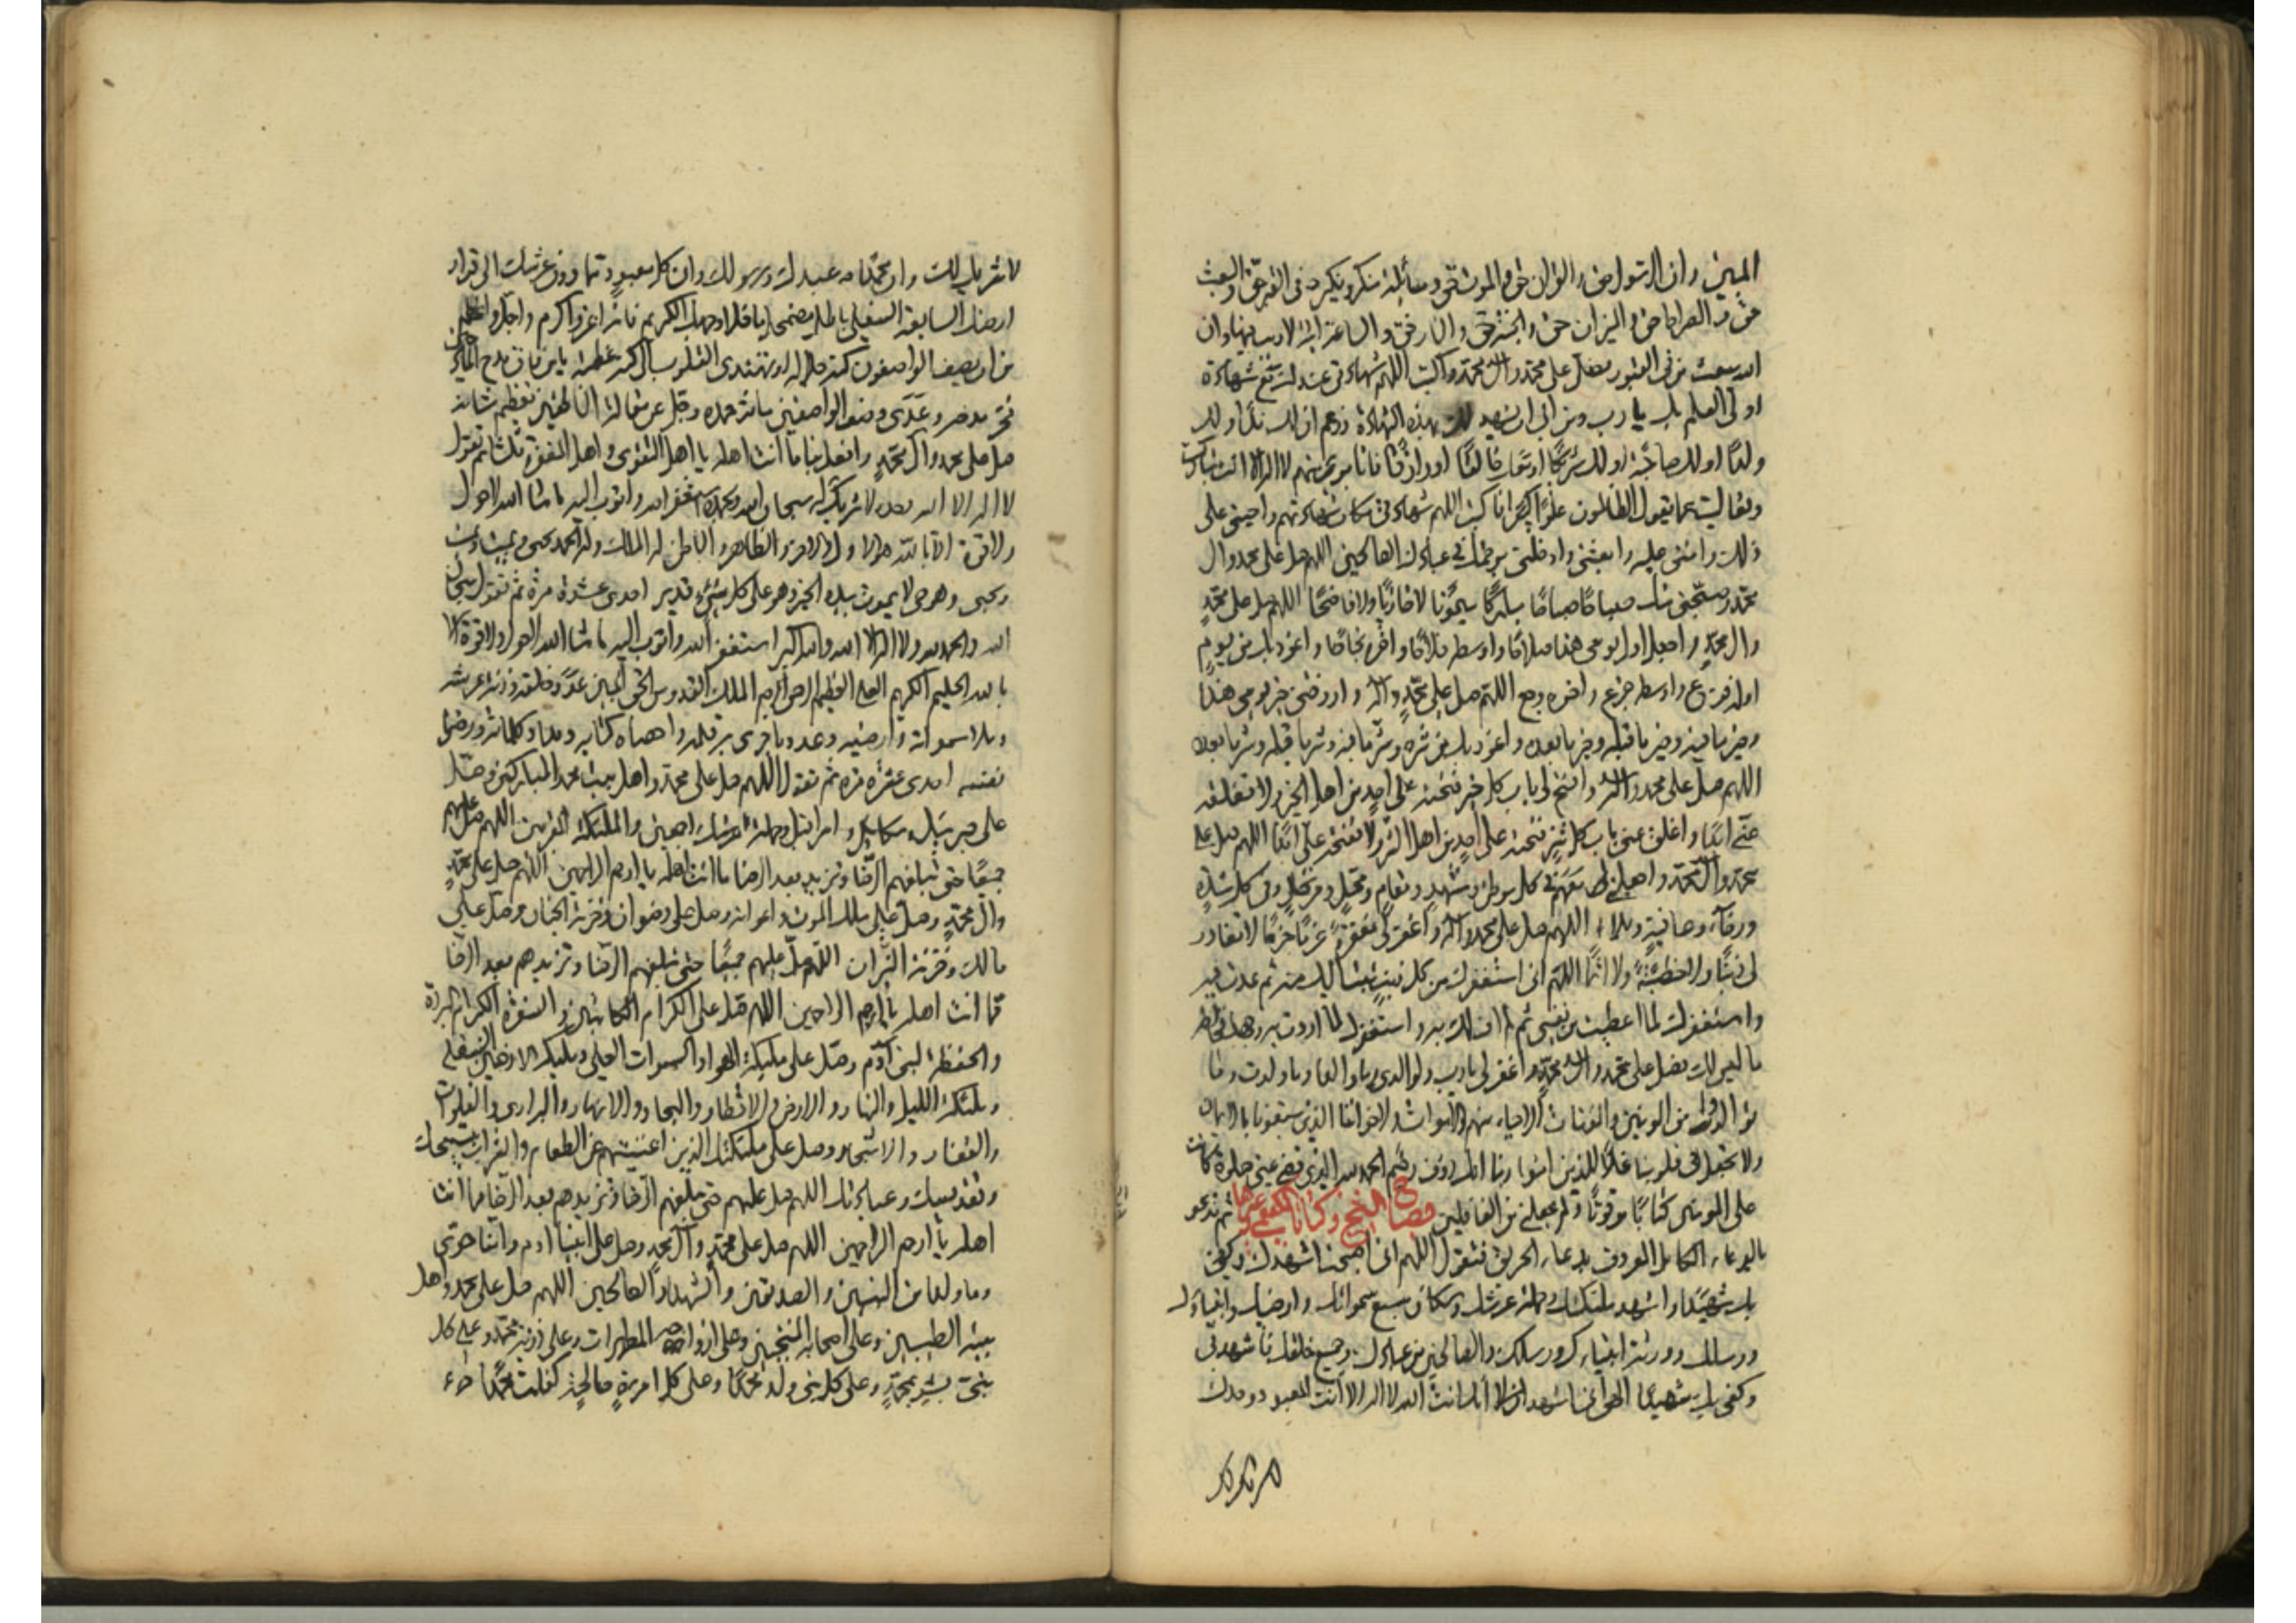 المبين وان الرسول حق والقران حق والموت حق ومسألة منكر ونكير فى القبر حق والبعث
حق والصراط حق والميزان حق والجنة حق والنار حق والساعة اتية لا ريب فيها وان
الله يبعث من فى القبور فصل على محمد وال محمد واكتب اللهم شهادتى عندك مع شهادة
اولى العلم بك يا رب ومن ابى ان يشهد لك بهذه الشهادة وزعم ان لك ندا او لك
ولدا او لك صاحبة او لك شريكا او معك خالقا او رازقا فانا برئ منهم لا اله الا انت تباركت
وتعاليت عما يقول الظالمون علوا كبيرا فاكتب اللهم شهادتى مكان شهادتهم واحينى على
ذلك وامتنى عليه وابعثنى وادخلنى برحمتك فى عبادك الصالحين اللهم صل على محمد وال
محمد وصبحنى منك صباحا صالحا مباركا ميمونا لا خازيا ولا فاضحا اللهم صل على محمد
وال محمد واجعل اول يومى هذا صلاحا واوسطه فلاحا واخره نجاحا واعوذ بك من يوم
اوله فزع واوسطه جزع واخره وجع اللهم صل على محمد واله وارزقنى خير يومى هذا
وخير ما فيه وخير ما قبله وخير ما بعده واعوذ بك من شره وشر ما فيه وشر ما قبله وشر ما بعده
اللهم صل على محمد واله وافتح لى باب كل خير فتحته على احد من اهل الخير ولا تغلقه
عنى ابدا واغلق عنى باب كل شر فتحته على احد من اهل الشر ولا تفتحه على ابدا اللهم صل على
محمد وال محمد واجعلنى معهم فى كل موطن ومشهد ومقام ومحل ومرتحل وفى كل شدة
ورخاء وعافية وبلاء اللهم صل على محمد واله واغفر لى مغفرة عزما جزما لا تغادر
لى ذنبا ولا خطيئة ولا اثما اللهم انى استغفرك من كل ذنب تبت اليك منه ثم عدت فيه
واستغفرك لما اعطيت من نفسى ثم لم اف لك به واستغفرك لما اردت به وجهك فخالطه
ما ليس لك فصل على محمد وال محمد واغفر لى يا رب ولوالدى وما والدا وما ولدت وما
توالدوا من المومنين والمومنات الاحياء منهم والاموات ولاخواننا الذين سبقونا بالايمان
ولا تجعل فى قلوبنا غلا للذين امنوا ربنا انك رؤف رحيم الحمد لله الذى قضى عنى صلوة كانت
على المومنين كتابا موقوتا ولم يجعلنى من الغافلين ثم تدعو
بالدعاء الكامل المعروف بدعاء الحريق فتقول اللهم انى اصبحت اشهدك وكفى
بك شهيدا واشهد ملئكتك وحملة عرشك وسكان سبع سمواتك وارضيك وانبياءك
ورسلك وورثة انبياءك ورسلك والصالحين من عبادك وجميع خلقك فاشهد لى
وكفى بك شهيدا انى اشهد انك انت الله لا اله الا انت المعبود وحدك
لا شريك لك
لا شريك لك وان محمدا عبدك ورسولك وان كل معبود مما دون عرشك الى قرار
ارضك السابعة السفلى باطل مضمحل ما خلا وجهك الكريم فانه اعز واكرم واجل واعظم
من ان يصف الواصفون كنه جلاله او تهتدى القلوب الى كنه عظمته يا من فاق مدح المادحين
فخر مدحه وعدى وصف الواصفين ماثر حمده وجل عن مقالة الناطقين تعظيم شانه
صل على محمد وال محمد وافعل بنا ما انت اهله يا اهل التقوى واهل المغفرة ثلثا ثم تقول
لا اله الا الله وحده لا شريك له سبحان الله وبحمده استغفر الله واتوب اليه ما شاء الله لا حول
ولا قوة الا بالله هو الاول والاخر والظاهر والباطن له الملك وله الحمد يحيى ويميت ويميت
ويحيى وهو حى لا يموت بيده الخير وهو على كل شئ قدير احدى عشرة مرة ثم تقول سبحان
الله والحمد لله ولا اله الا الله والله اكبر استغفر الله واتوب اليه ما شاء الله لا حول ولا قوة الا
بالله الحليم الكريم العلى العظيم الرحمن الرحيم الملك القدوس الحق المبين عدد خلقه وزنة عرشه
وملا سمواته وارضيه وعدد ما جرى به قلمه واحصاه كتابه ومداد كلماته ورضا
نفسه احدى عشره مره ثم تقول اللهم صل على محمد واهل بيت محمد المباركين وصل
على جبرئيل وميكائيل واسرافيل وحملة عرشك اجمعين والملئكة المقربين اللهم صل عليهم
جميعا حتى تبلغهم الرضا وتزيدهم بعد الرضا ما انت اهله يا ارحم الراحمين اللهم صل على محمد
وال محمد وصل على ملك الموت واعوانه وصل على رضوان وخزنة الجنان وصل على
مالك وخزنة النيران اللهم صل عليهم جميعا حتى تبلغهم الرضا وتزيدهم بعد الرضا
مما انت اهله يا ارحم الراحمين اللهم صل على الكرام الكاتبين والسفرة الكرام البررة
والحفظة لبنى ادم وصل على ملئكة الهواء والسموات العلى وملئكة الارضين السفلى
وملئكة الليل والنهار والارض والاقطار والبحار والانهار والبرارى والفلوات
والقفار والاشجار وصل على ملئكتك الذين اغنيتهم عن الطعام والشراب بتسبيحك
وتقديسك وعبادتك اللهم صل عليهم حتى تبلغهم الرضا وتزيدهم بعد الرضا مما انت
اهله يا ارحم الراحمين اللهم صل على محمد وال محمد وصل على ابينا ادم وامنا حوى
وما ولدا من النبيين والصديقين والشهداء والصالحين اللهم صل على محمد واهل
بيته الطيبين وعلى اصحابه المنتجبين وعلى ازواجه المطهرات وعلى ذرية محمد وعلى كل
نبى بشر بمحمد وعلى كل نبى ولد محمدا وعلى كل امرءة صالحة كفلت محمدا